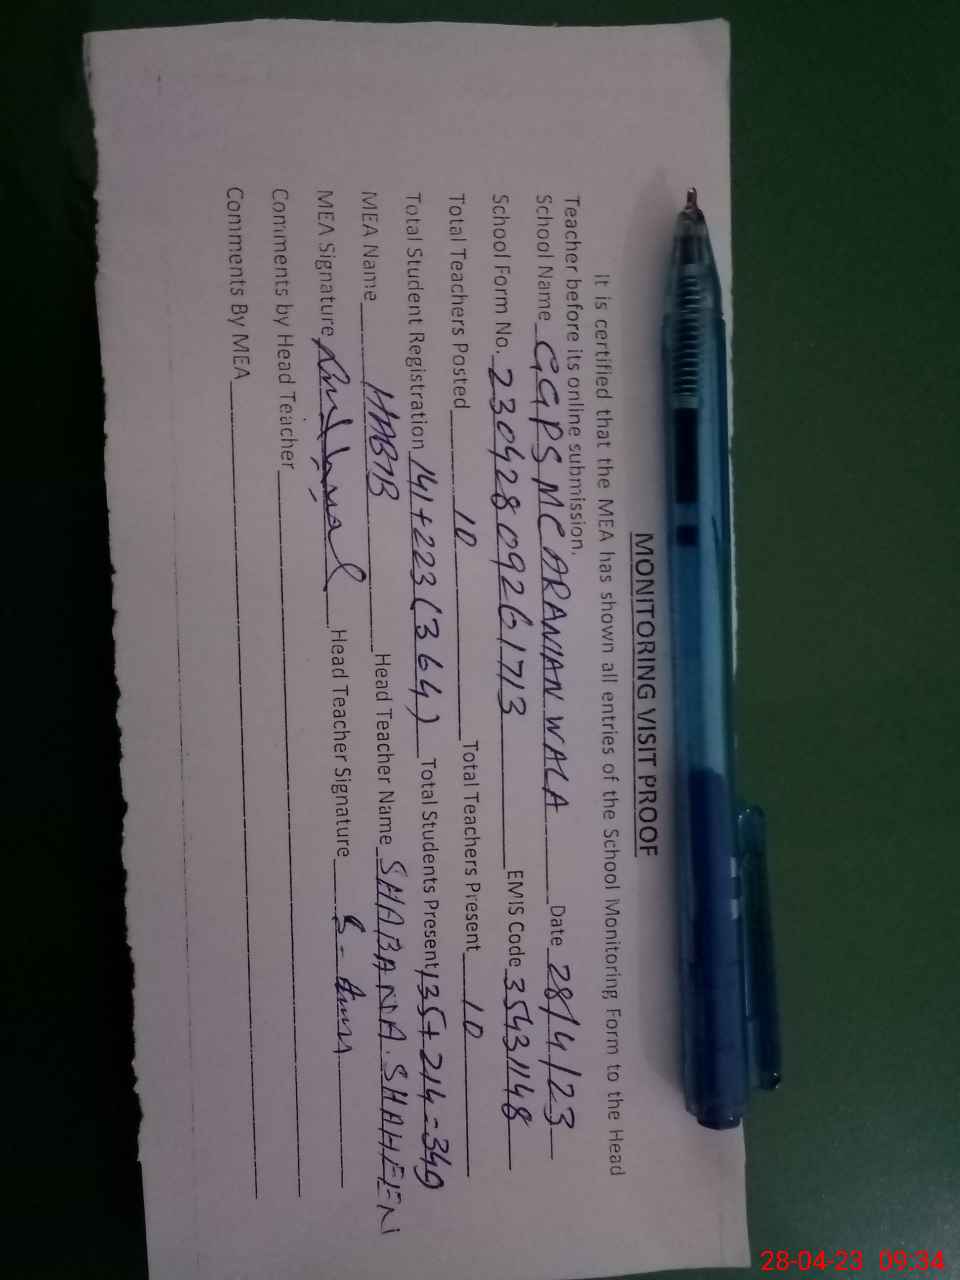 MONITORING VISIT PROOF
It is certified that the MEA has shown all entries of the School Monitoring Form to the Head
Teacher before its online submission.
School Name GGPS MC ARANIAN WALA Date 28/4/23
School Form No. 23042809261713 EMIS Code 35431148
Total Teachers Posted 10 Total Teachers Present 10
Total Student Registration 141+223(364) Total Students Present 135+214=349
MEA Name HABIB Head Teacher Name SHABANA.SHAHEEN
MEA Signature Head Teacher Signature
Comments by Head Teacher
Comments By MEA
28-04-23 09:34